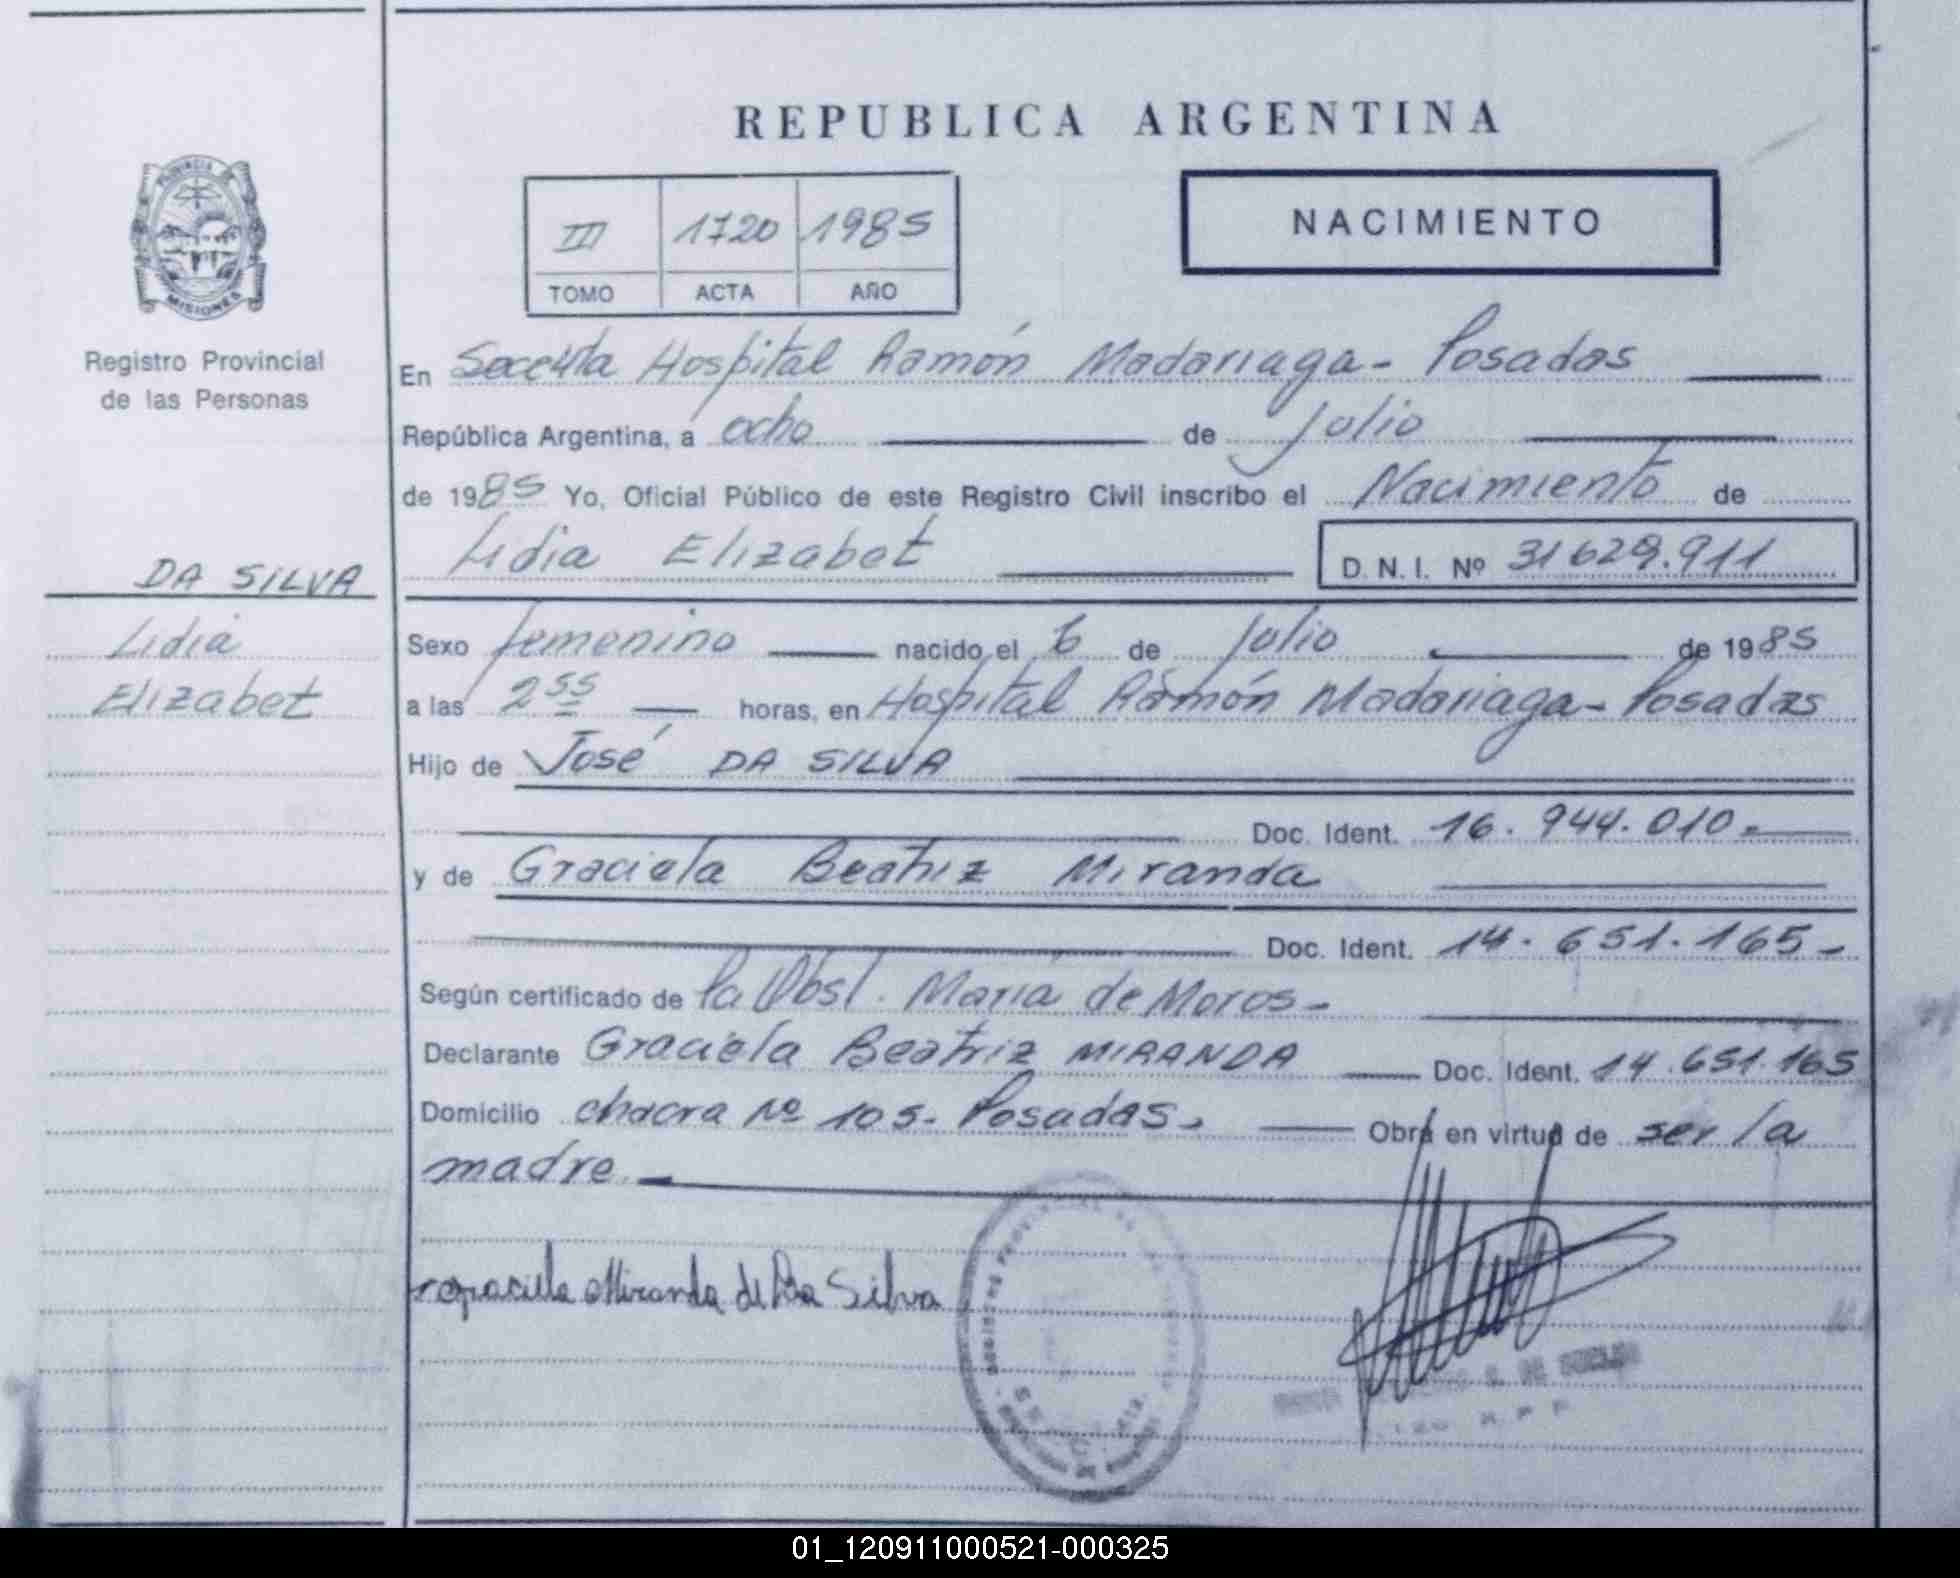 REPUBLICA ARGENTINA
PROVINCIA DE MISIONES
Registro Provincial
de las Personas
III 1720 1985
TOMO ACTA AÑO
NACIMIENTO
En Hospital Ramón Madariaga - Posadas
República Argentina, a ocho de Julio
de 1985 Yo, Oficial Público de este Registro Civil inscribo el Nacimiento de
Lidia Elizabet D. N. I. Nº 31629.911
DA SILVA
Lidia
Elizabet
Sexo femenino nacido el 6 de Julio de 1985
a las 2 55 horas, en Hospital Ramón Madariaga - Posadas
Hijo de José DA SILVA
Doc. Ident. 16.944.010.-
y de Graciela Beatriz Miranda
Doc. Ident. 14.651.165-
Según certificado de la Obst. María de Moros-
Declarante Graciela Beatriz MIRANDA Doc. Ident. 14.651.165
Domicilio chacra Nº 105- Posadas. Obra en virtud de ser la
madre.
Graciela Miranda de Da Silva
01_120911000521-000325